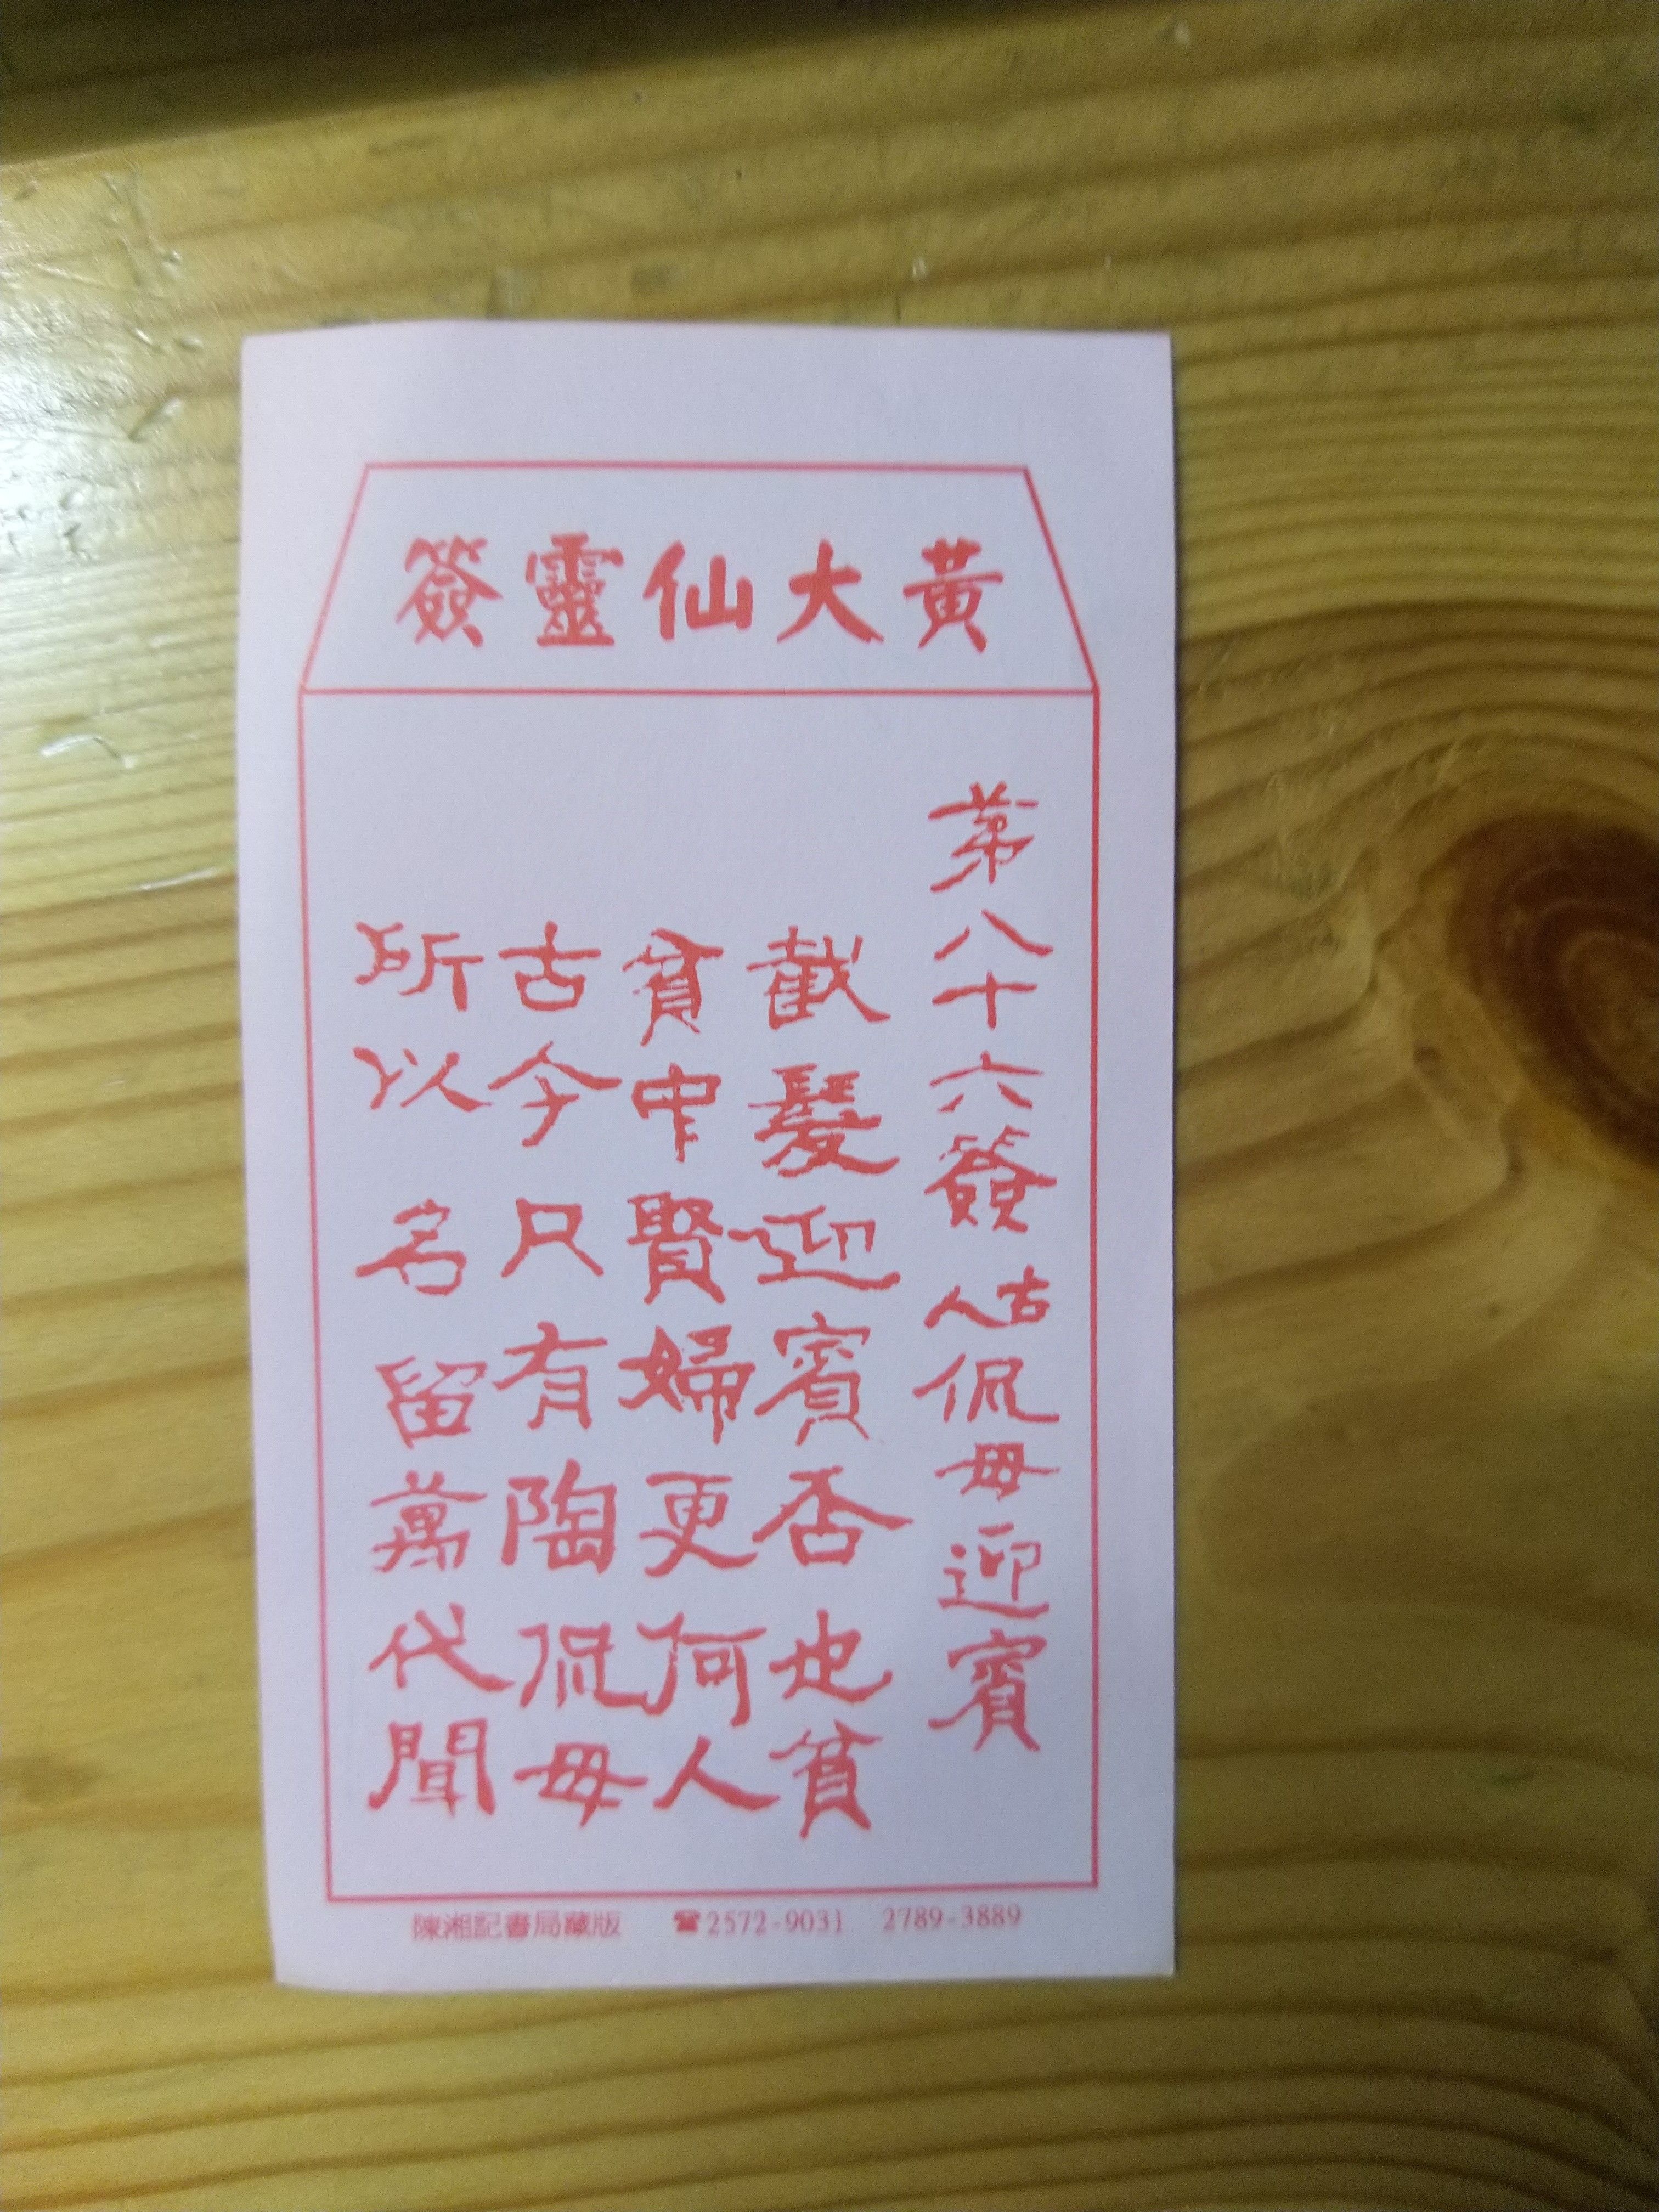 黃大仙靈簽
第八十六簽 古人 侃母迎賓
截髮迎賓否也貧
貧中賢婦更何人
古今只有陶侃母
所以名留萬代聞
陳湘記書局藏版 ☎2572-9031 2789-3889